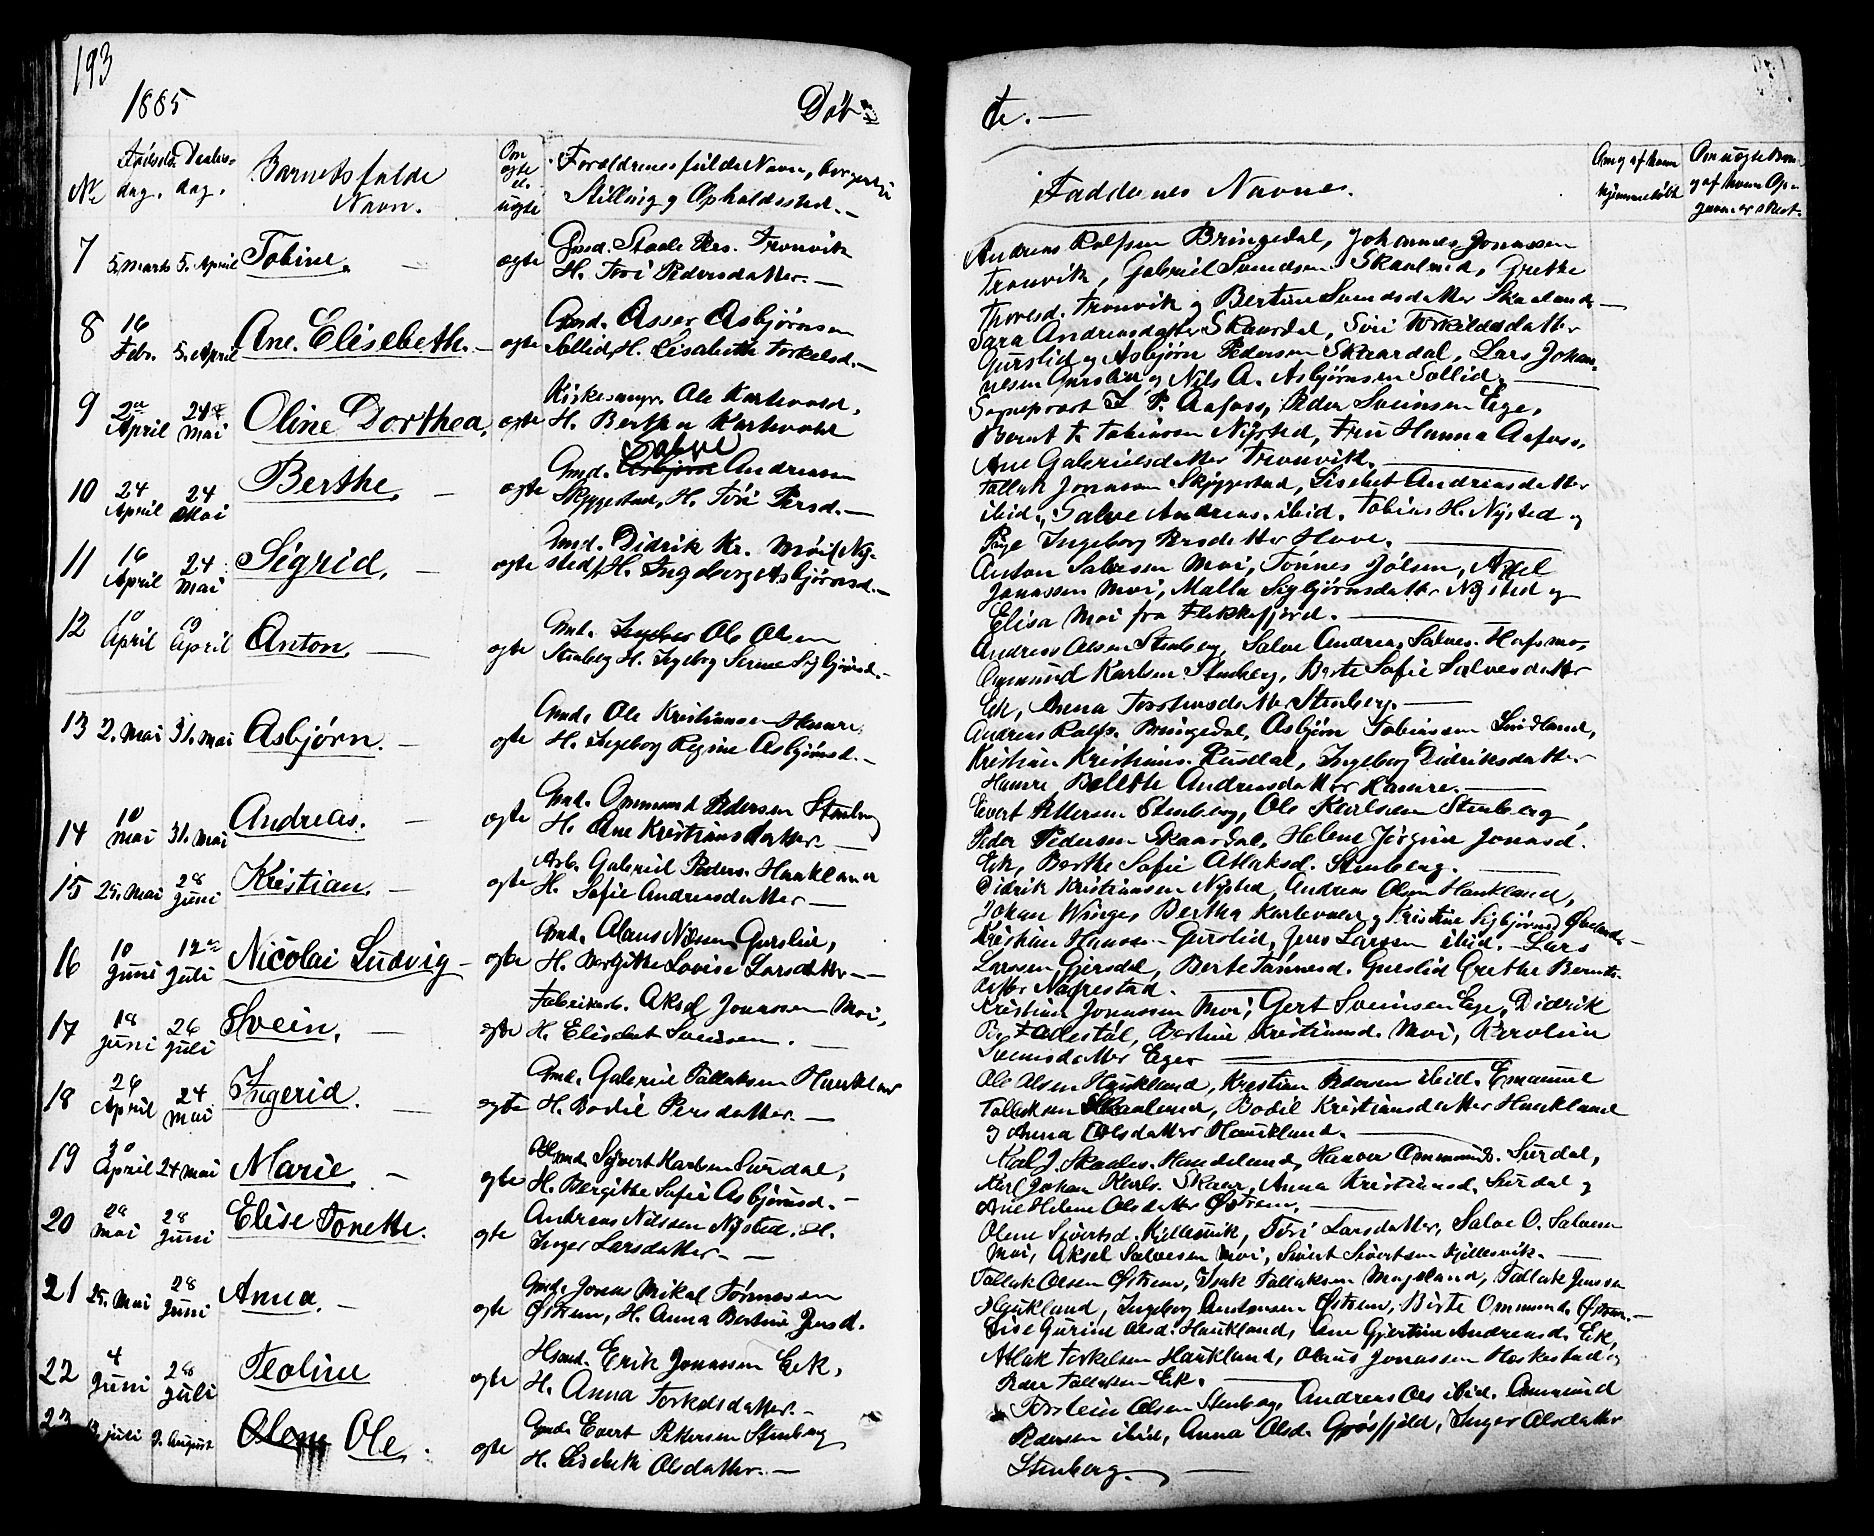 193
1885
Døb-
te. -
No
Fødsels-
dag.
Daabs-
dag.
Barnets fulde
Navn.
Om
ægte
el.
uægte
Forældrenes fulde Navn, borgerlige
Stilling og Opholdssted. -
Faddernes Navne.
Om og af hvem
hjemmedøbt
7 5. Marts 5. April Tobine. - ægte
Gmd. Staale Pers. Tronvik
H. Tori Pedersdatter. -
Andreas Rolfsen Bringedal, Johannes Jonassen
Tronvik, Gabriel Svendsen Skaaland, Grethe
Thoresd. Tronvik og Bertine Svendsdatter Skaaland -
8 16 Febr. 5. April Ane Elisebeth. - ægte
Gmd. Asser Asbjørnsen
Sollid, H. Lisabeth Torkelsd. -
Sara Andreasdatter Skaardal, Siri Torkildsdatter
Gurslid og Asbjørn Pedersen Skaardal, Lars Johan-
nesen Gurslid og Nils A. Asbjørnsen Sollid. -
9 2den April 24de Mai Oline Dorthea. ægte
Kirkesanger Ole Kartevold,
H. Bertha Kartevold
Sogneprest P. Aafoss, Peder Sveinsen Ege,
Bernt T. Tobiassen Nysted, Fru Hanna Aafoss,
Ane Gabrielsdatter Tronvik. -
10 24 April 24 Mai Berthe. - ægte
Salve
Gmd. Asbjørn Andreassen
Skjeggestad, H. Tori Persd. -
Tallak Jonassen Skjeggestad, Lisebet Andreasdatter
ibid., Salve Andreas. ibid. Tobias H. Nysted og
Pige Ingeborg Persdatter Hove. -
11 16 April 24 Mai Sigrid. - ægte
Gmd. Didrik Kr. Moi (Ny-
sted) H. Ingeborg Asbjørnsd. -
Anton Salvesen Moi, Tønnes Jølsen, Axel
Jonassen Moi, Malla Sigbjørnsdatter Nysted og
Elisa Moi fra Flekkefjord. -
12 10 April 19 April Anton. - ægte
Gmd. Ole Olsen
Stenberg H. Ingeborg Serine Sigbjørnsd. -
Andreas Olsen Stenberg, Salve Andreas Salves. Hafsmo,
Ommund Karlsen Stenberg, Berte Sofie Salvesdatter
Eik, Anna Torsteinsdatter Stenberg. -
13 2. Mai 31. Mai Asbjørn. - ægte
Gmd. Ole Kristiansen Hamre,
H. Ingeborg Regine Asbjørnsd. -
Andreas Rolfs. Bringedal, Asbjørn Tobiassen Sindland,
Kristian Kristians. Rusdal, Ingeborg Didriksdatter
Hamre, Bolette Andreasdatter Hamre. -
14 10 Mai 31. Mai Andreas. - ægte
Gmd. Ommund Pedersen Stenberg
H. Ane Kristiansdatter. -
Evert Pettersen Stenberg, Ole Karlsen Stenberg,
Peder Pedersen Skaardal, Helene Jørgine Jonasd.
Eik, Berthe Sofie Atlaksd. Stenberg. -
15 25. Mai 28 Juni Kristian. - ægte
Arb. Gabriel Peders. Haukland
H. Sofie Andreasdatter -
Didrik Kristiansen Nysted, Andreas Olsen Haukland,
Johan Winge, Bertha Kartevold og Kristine Sigbjørnsd.
16 10 Juni 12te Juli Nicolai Ludvig - ægte
Gmd. Olaus Nilsen Gurslid,
H. Bergitte Lovise Larsdatter -
Kristian Hansen Gurslid, Jens Larsen ibid. Lars
Larssen Gjersdal, Berte Tønnesd. Gurslid Grethe Bernts-
datter Nagrestad. -
17 18 Juni 26 Juli Svein. - ægte
Fabrikarb. Aksel Jonassen Moi,
H. Elisebet Sveinsen. -
Kristian Jonassen Moi, Gert Sveinsen Ege, Didrik
Fedlestøl, Bertine Kristiansd. Moi, Karolin
Sveinsdatter Ege. -
18 26 April 24 Mai Ingerid. - ægte
Gmd. Gabriel Tallaksen Haukland
H. Bodil Persdatter. -
Ole Olsen Haukland, Kristian Pedersen ibid. Emanuel
Tallaksen Skaaland, Bodil Kristiansdatter Haukland
og Anna Olsdatter Haukland. -
19 30 April 24 Mai Marie. - ægte
Gmd. Sivert Karlsen Surdal,
H. Bergitte Sofie Asbjørnsd. -
Karl J. Skaales. Handeland, Hanver Ommunds. Surdal,
Karl Johan Karls. Skaar, Anna Kristiansd. Surdal og
Ane Helene Olsdatter Østrem. -
20 28 Mai 28 Juni Elise Tonette. ægte
Andreas Nilssen Nysted. H.
Inger Larsdatter. -
Olene Sivertsd. Kjellesvik, Tori Larsdatter, Salve O. Salvesen
Moi, Aksel Salvesen Moi, Sivert Sivertsen Kjellesvik. -
21 25. Mai 28 Juni Anna. - ægte
Gmd. Jonas Mikal Tønnessen
Østrem, H. Anna Bertine Jensd.
Tallak Olsen Østrem, Isak Tallaksen Mageland, Tallak Jenssen
Haukland, Ingeborg Østrem, Birte Ommunds. Østrem. -
22 4 Juni 28 Juli Teoline ægte
Hsmd. Erik Jonassen Eik,
H. Anna Torkelsdatter. -
Lise Gurine Olsd. Haukland, Ane Gjertine Andreasd. Eik,
Atlak Torkelsen Haukland, Olaus Jonassen Heskestad og
Peder Tallaksen Eik. -
23 juli 9. August Olene Ole. ægte
Gmd. Evert Pettersen Stenberg
H. Lisebeth Olsdatter. -
Torstein Olsen Stenberg, Andreas Ols ibid. Ommund
Pedersen ibid, Anna Olsd. Grøsfjeld, Inger Olsdatter
Stenberg. -